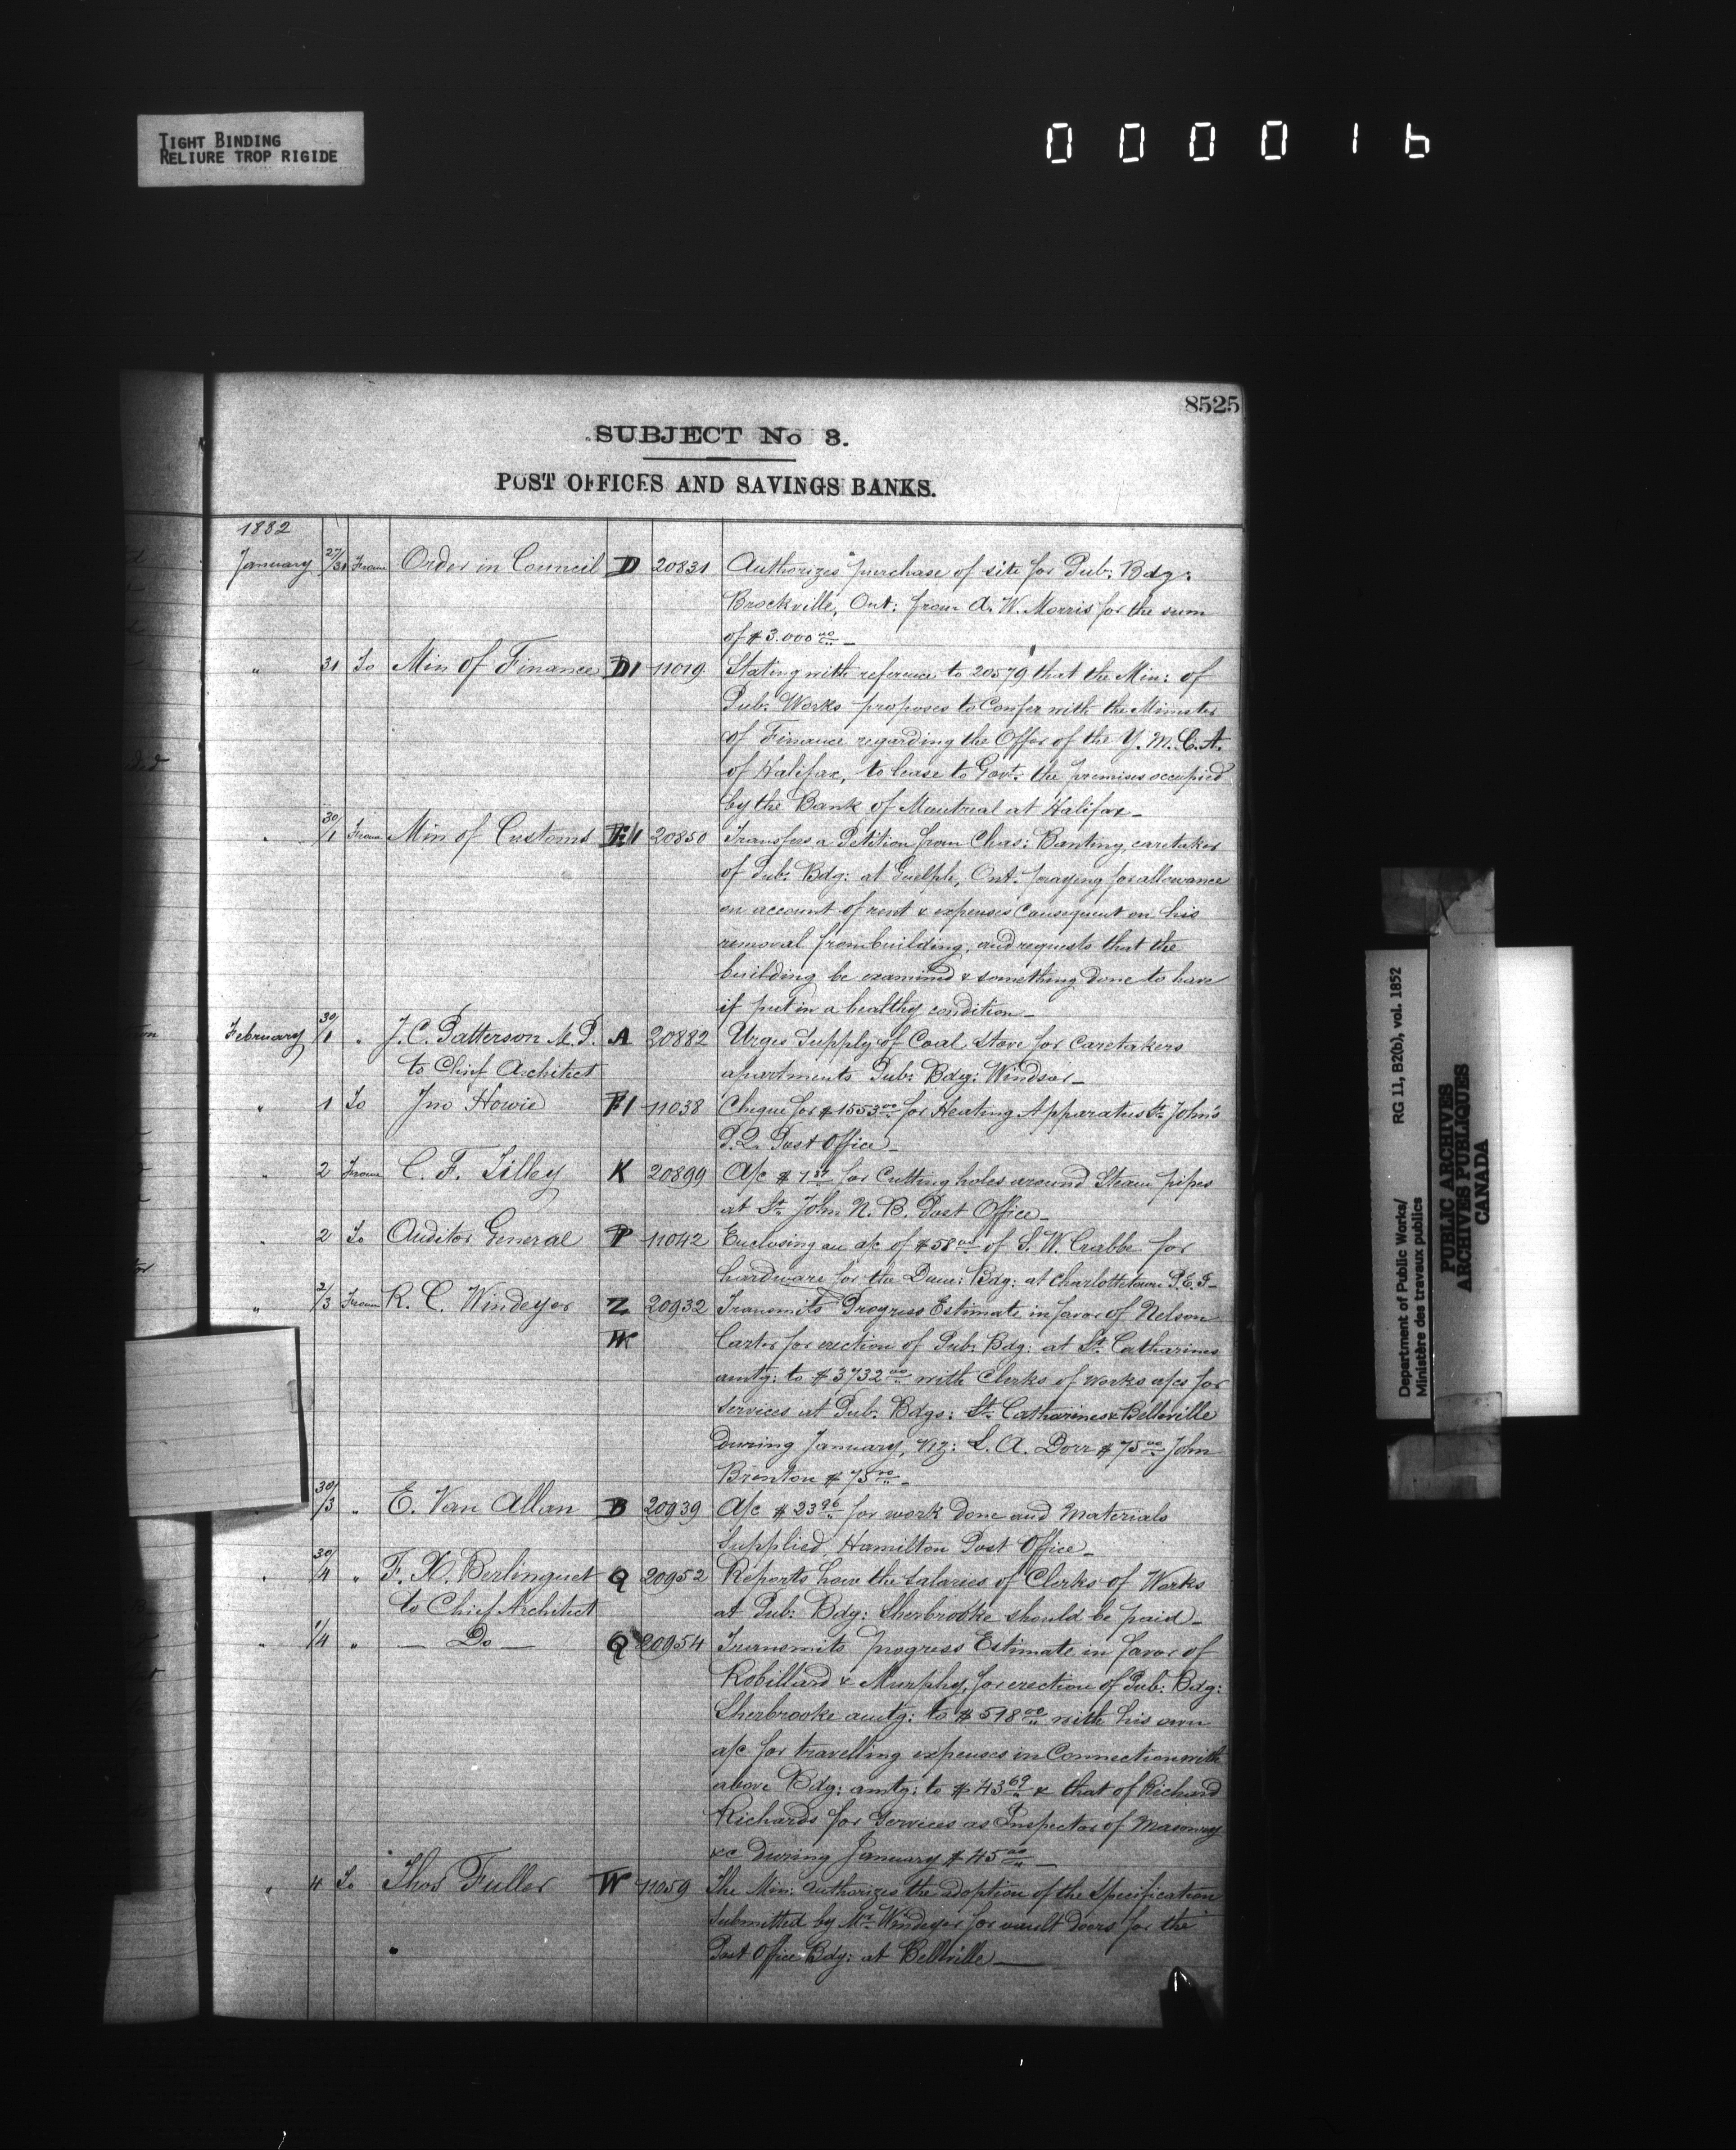 TIGHT BINDING
RELIURE TROP RIGIDE
000016
8525
SUBJECT No 3.
POST OFFICES AND SAVINGS BANKS.
1882
January 27/31 From Order in Council D 20831 Authorizes purchase of site for Pub: Bdg:
Brockville, Ont: from A. W. Morris for the sum
of $3.000 00 —
" 31 To Min of Finance D1 11019 Stating with reference to 20579 that the Min: of
Pub: Works proposes to Confer with the Minister
of Finance regarding the Offer of the Y. M. C. A.
of Halifax, to lease to Govt. the premises occupied
by the Bank of Montreal at Halifax —
" 30/1 From Min of Customs 20850 Transfers a Petition from Chas: Banting, caretaker
of Pub: Bdg: at Guelph, Ont. praying for allowance
on account of rent & expenses consequent on his
removal from building, and requests that the
building be examined & something done to have
it put in a healthy condition —
February 30/1 " J. C. Patterson M.P. A 20882 Urges Supply of Coal Stove for Caretakers
to Chief Architect apartments Pub: Bdg: Windsor —
" 1 To Jno Howie F1 11038 Cheque for $1553 00 for Heating Apparatus St. John's
P.Q. Post Office —
" 2 From C. F. Tilley K 20899 A/c $ for Cutting holes around Steam pipes
at St. John N. B. Post Office —
" 2 To Auditor General P 11042 Enclosing an a/c of $58 00 of S. W. Crabbe for
hardware for the Dom: Bdg: at Charlottetown P.E.I —
" 2/3 From R. C. Windeyer Z 20932 Transmits Progress Estimate in favor of Nelson
W Carter for erection of Pub: Bdg: at St. Catharines
amtg: to $3732 00 with Clerks of works a/cs for
services at Pub: Bdgs: St. Catharines & Belleville
During January, viz: L. A. Dorr $75 00 John
Brenton $75 00 —
" 30/3 " E. Van Allan B 20939 A/c $23 96 for work done and Materials
Supplied, Hamilton Post Office —
" 30/4 " F. X. Berlinguet Q 20952 Reports how the Salaries of Clerks of Works
to Chief Architect at Pub: Bdg: Sherbrooke should be paid —
" 1/4 " — Do — Q 20954 Transmits progress Estimate in favor of
Robillard & Murphy, for erection of Pub: Bdg:
Sherbrooke amtg: to $598 00 with his own
a/c for travelling expenses in Connection with
above Bdg: amtg: to $43 69 & that of Richard
Richards for Services as Inspector of Masonry
&c During January $45 00 —
" 4 To Thos Fuller W 11059 The Min: authorizes the adoption of the Specification
submitted by Mr. Windeyer for vault doors for the
Post Office Bdg: at Belleville —
Department of Public Works/ RG 11, B2(b), vol. 1852
Ministère des travaux publics
PUBLIC ARCHIVES
ARCHIVES PUBLIQUES
CANADA